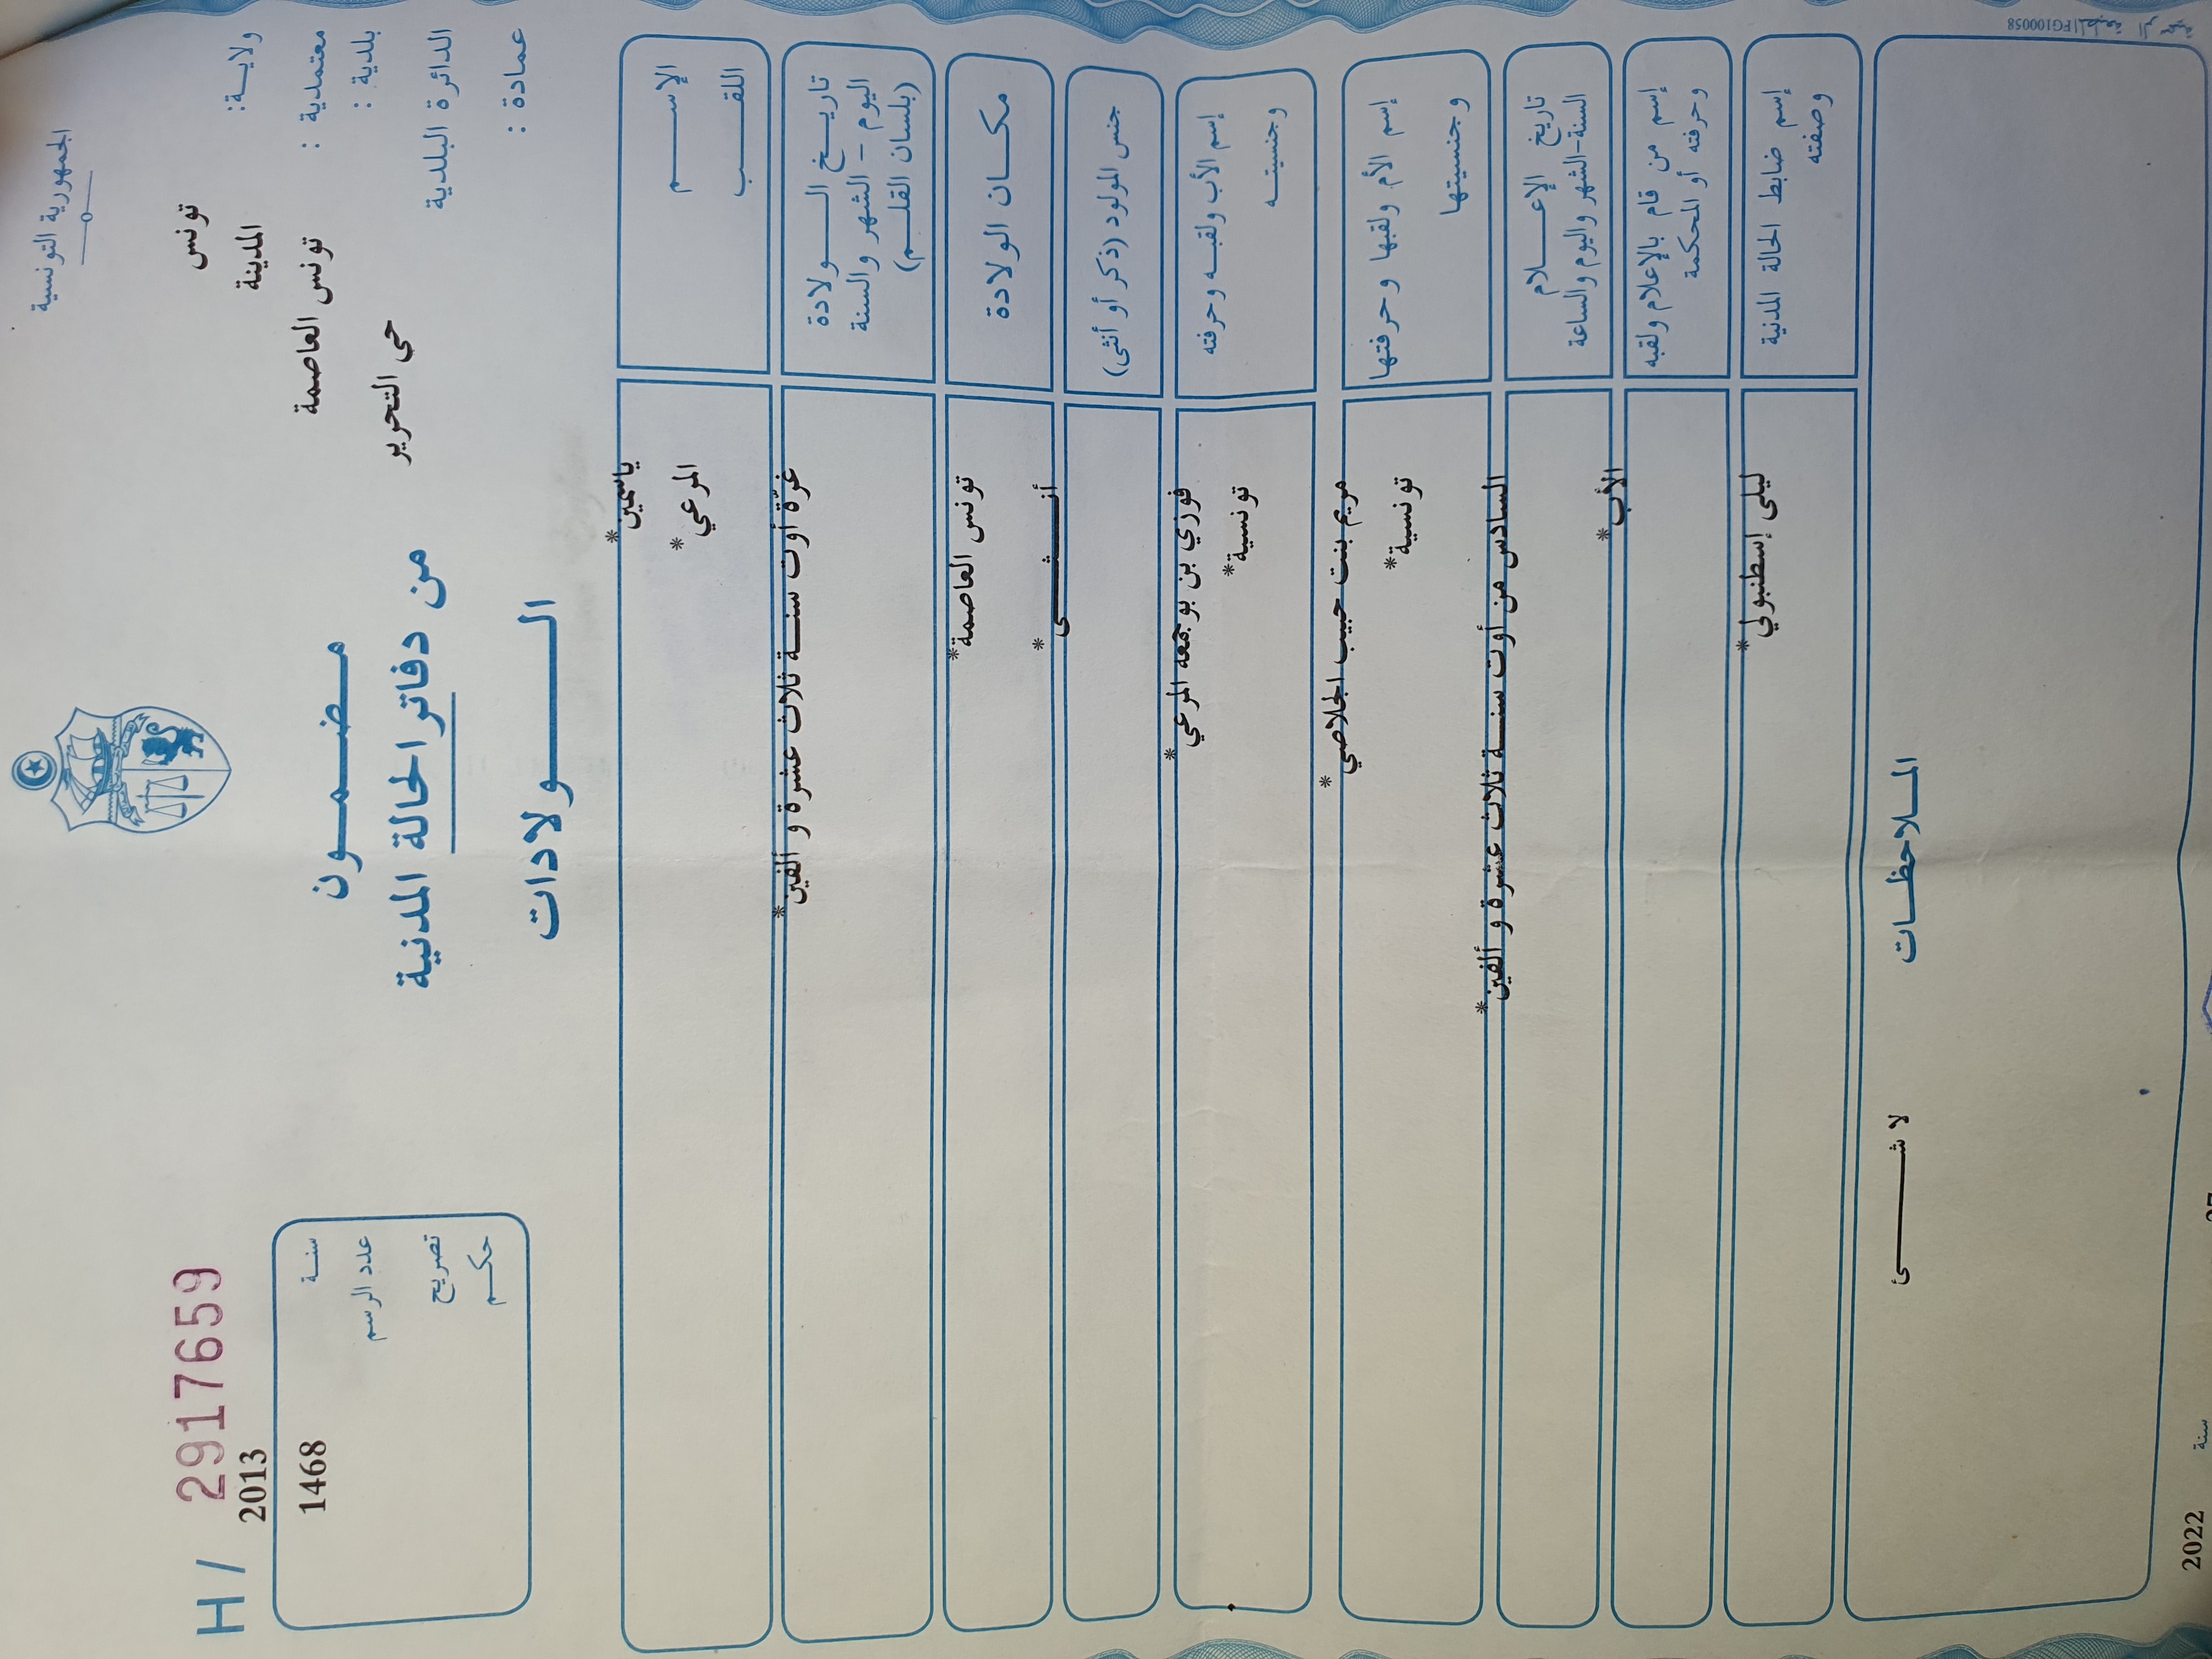 الجمهورية التونسية
ولاية: تونس
معتمدية : المدينة
بلدية : تونس العاصمة
الدائرة البلدية حي التحرير
عمادة :
H / 2917659
2013
سنة
عدد الرسم 1468
تصريح
حكم
مضمون
من دفاتر الحالة المدنية
الولادات
الإسم ياسمين*
اللقب المرعي*
تاريخ الولادة
اليوم - الشهر والسنة
(بلسان القلم)
غرّة أوت سنة ثلاث عشرة و ألفين*
مكان الولادة تونس العاصمة*
جنس المولود (ذكر أو أنثى) أنثى*
إسم الأب ولقبه وحرفته فوزي بن بوجمعه المرعي*
وجنسيته تونسية*
إسم الأم ولقبها وحرفتها مريم بنت حبيب الجلاصي*
وجنسيتها تونسية*
تاريخ الإعلام
السنة-الشهر واليوم والساعة
السادس من أوت سنة ثلاث عشرة و ألفين*
إسم من قام بالإعلام ولقبه
وحرفته أو المحكمة
الأب*
إسم ضابط الحالة المدنية
وصفته
ليلى إسطنبولي*
الملاحظات
لا شئ
سنة 2022
FG100058